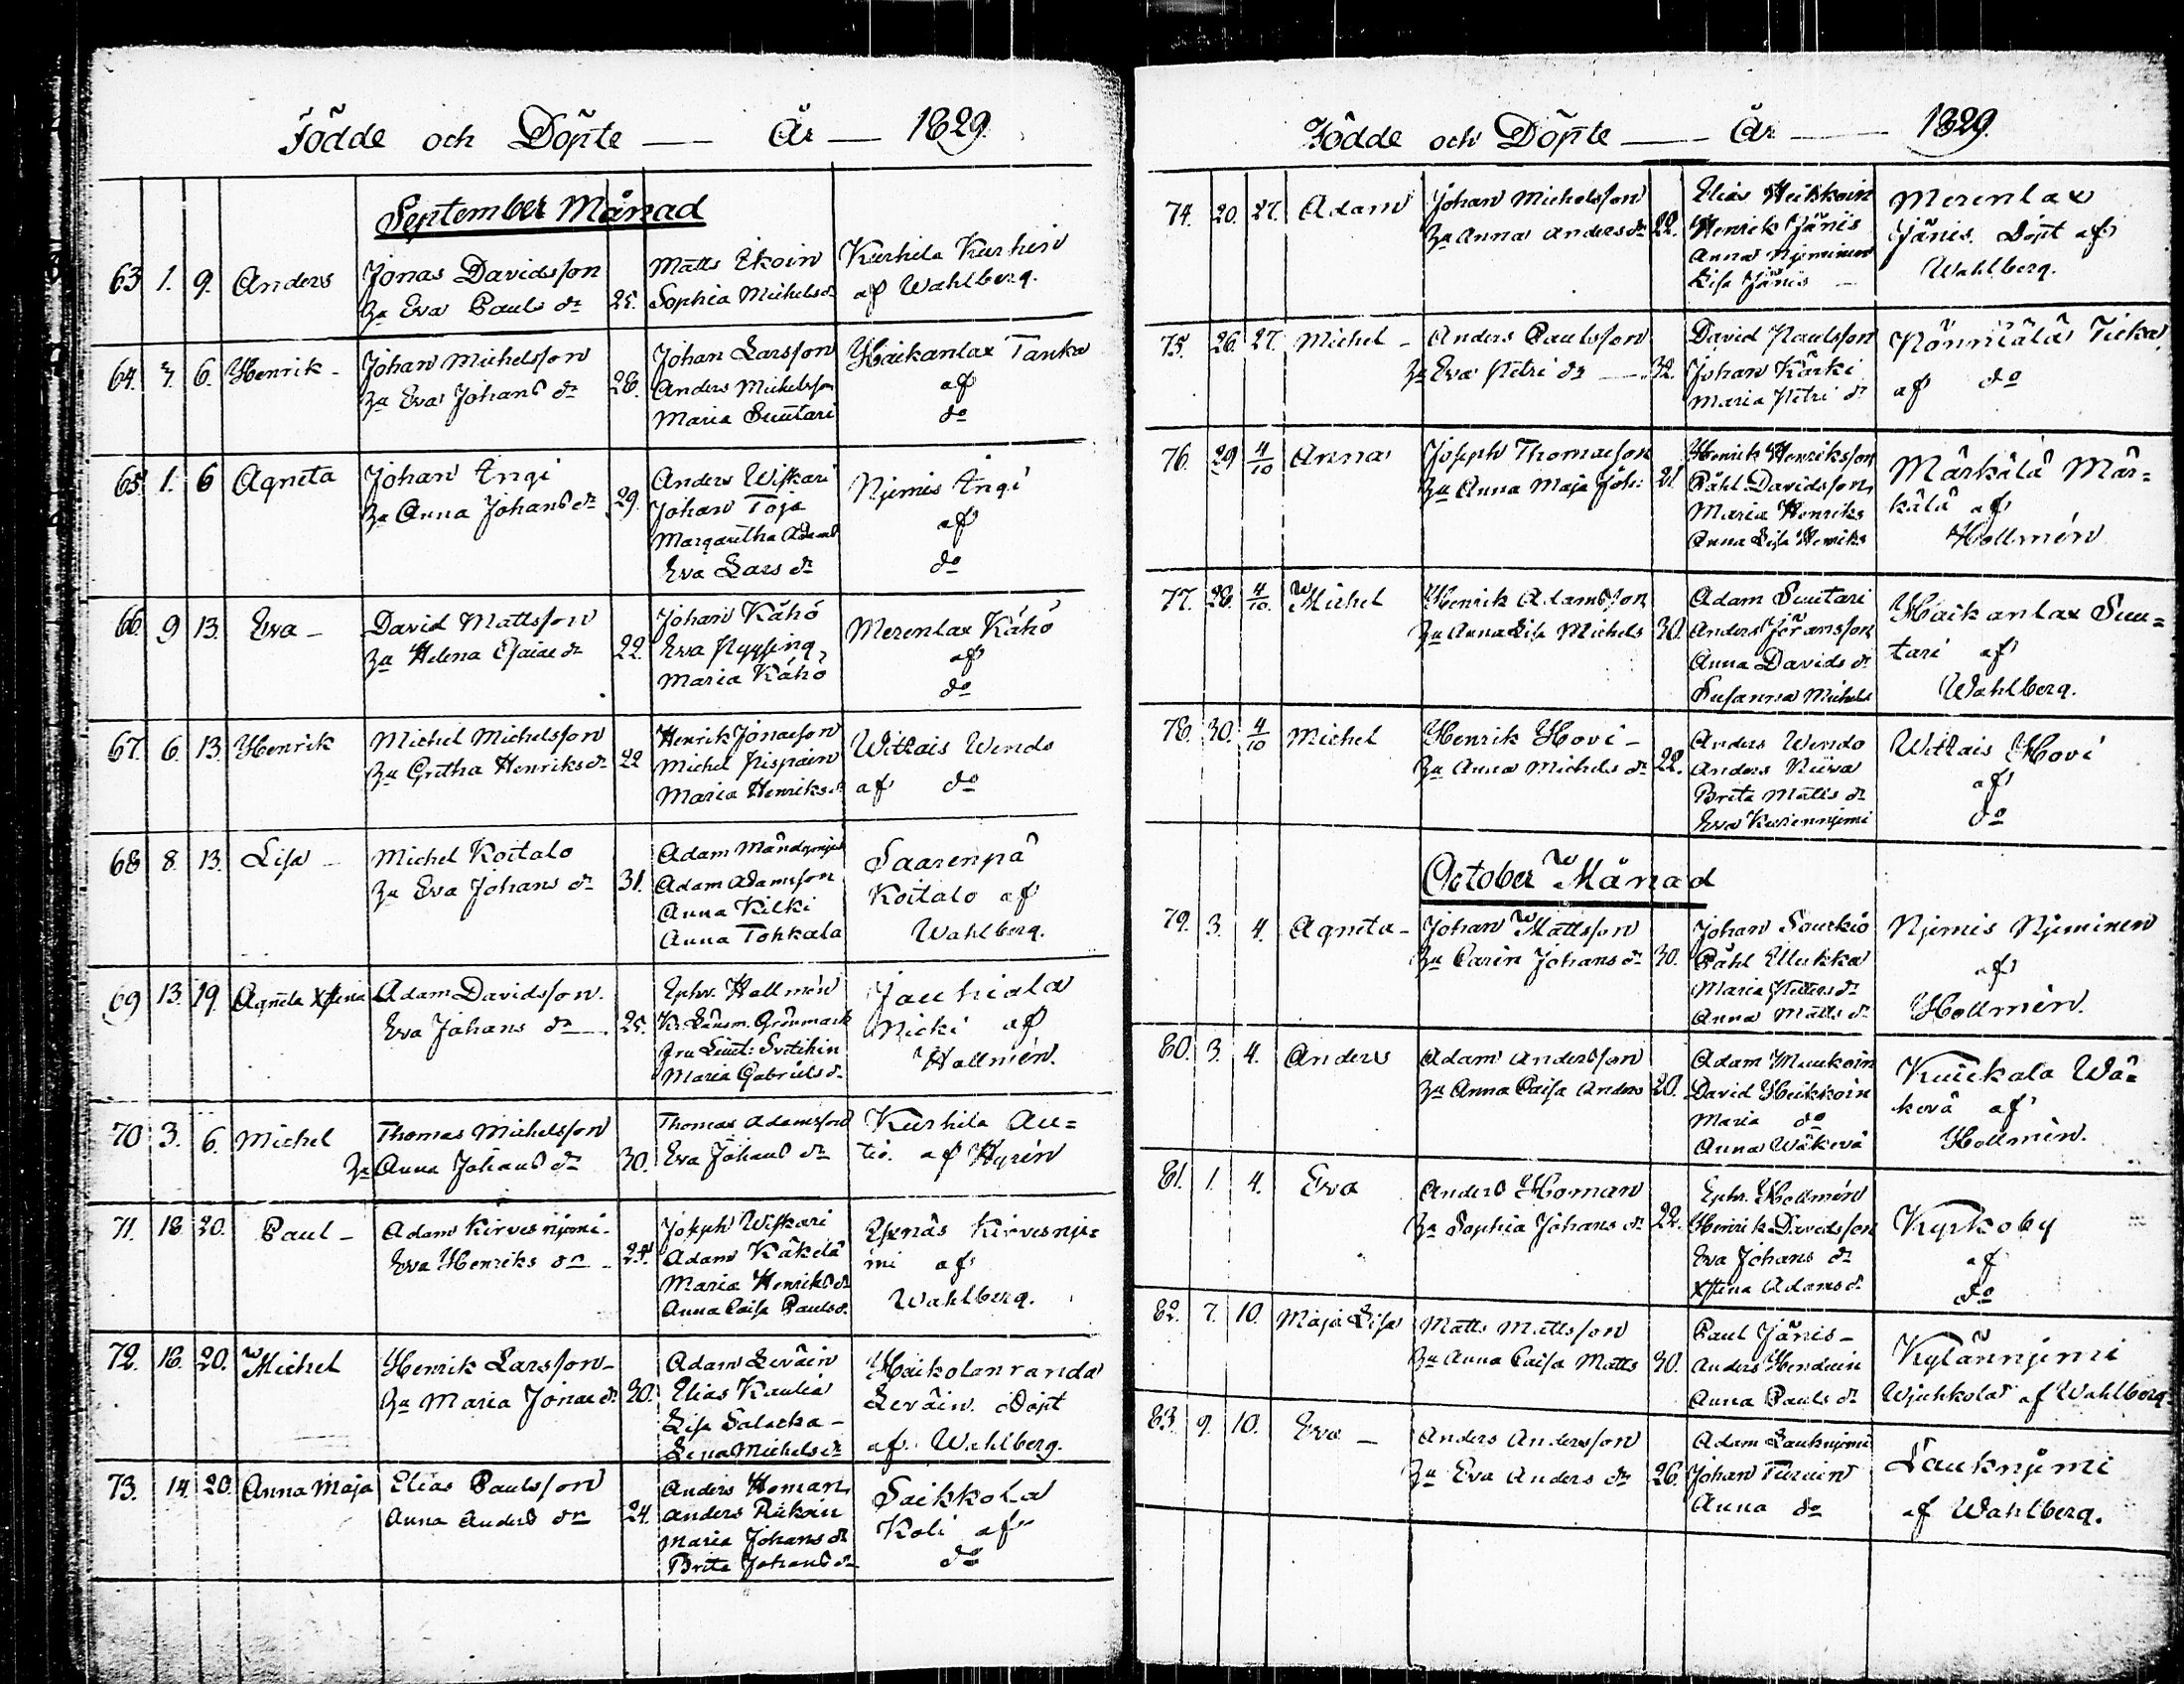 Födde och Döpte — År — 1829.
September Månad
63 1. 9. Anders
Jonas Davidsson
Hu Eva Pauls dr 25.
Matts Ikoin
Sophia Michelsdr
Kurhila Kurhein
af Wahlberg.
64. 7. 6. Henrik -
Johan Michelsson
Hu Eva Johans dr 28.
Johan Larsson
Anders Michelsson
Maria Suutari
Haikanlax Tanka
af
do
65. 1. 6 Agneta
Johan Ängi
Hu Anna Johans dr 29.
Anders Wiskari
Johan Toja
Margaretha Adams
Eva Lars dr
Njemis Ängi
af
do
66. 9 13. Eva -
David Mattsson
Hu Helena Esaiae dr 22.
Johan Kähö
Eva Pyssing
Maria Kähö
Merenlax Kähö
af
do
67. 6. 13. Henrik
Michel Michelsson
Hu Gretha Henriksdr 22
Henrik Jonaesson
Michel Pispain
Maria Henriksdr
Witkais Wendo
af do
68 8. 13. Lisa -
Michel Koitalo
Hu Eva Johans dr 31.
Adam
Adam Adamsson
Anna Kilki
Anna Tohkala
Saarenpä
Koitalo af
Wahlberg.
69 13. 19. Agneta Xstina
Adam Davidsson.
Eva Johans dr — . 25.
Ephr. Hollmén
Kr. Länsm. Grönmark
Fru Lieut:
Maria Gabriels dr
Jauhiala
Nicki af
Hollmén.
70 3. 6. Michel
Thomas Michelsson
Hu Anna Johans dr 30.
Thomas Adamsson
Eva Johans dr
Kurhila Au=
tio. af Hyrén
71. 18. 20. Paul -
Adam Kirvesnjemi.
Eva Henriks dr - 24.
Joseph Wiskari
Adam Käkelä
Maria Henriks dr
Anna Caisa Pauls dr
Espnäs Kirvesnje=
mi af
Wahlberg.
72. 16. 20. Michel
Henrik Larsson -
Hu Maria Jonae dr 30.
Adam Leväin
Elias Kaulia
Lisa Salacka -
Lena Michelsdr
Haikolanranda
Leväin. Döpt
af. Wahlberg.
73. 14. 20. Anna Maja
Elias Paulsson
Anna Anders dr 24.
Anders Homan
Anders Räikoin
Maria Johans dr
Brita Johans dr
Saikkola
Koli af
do
Födde och Döpte — År — 1829.
74. 20. 27. Adam
Johan Michelsson
Hu Anna Anders dr 22.
Elias Heikkoin
Henrik Jänis
Anna Njeminen
Lisa Jänis -
Merenlax
Jänis. Döpt af
Wahlberg.
75. 26. 27. Michel -
Anders Paulsson
Hu Eva Petri dr — 32.
David Paulsson
Johan Kärki
Maria Petri dr
Pönniälä Ticka
af do
76. 29 4/10 Anna
Joseph Thomaeson
Hu Anna Maja Joh: 21.
Henrik Henriksson
Påhl Davidsson
Maria Henriks
Anna Lisa Henriks
Märkälä Mär=
kälä af
Hollmén
77. 28. 4/10. Michel
Henrik Adamsson
Hu Anna Lisa Michels 30.
Adam Suutari
Anders Göransson
Anna Davids dr
Susanna Michels
Haikanlax Suu=
tari af
Wahlberg.
78. 30. 4/10 Michel
Henrik Hovi -
Hu Anna Michels dr 22.
Anders Wendo
Anders Niiva
Brita Matts dr
Eva Kuriennjemi
Witkais Hovi
af
do
October Månad
79. 3. 4. Agneta -
Johan Mattsson
Hu Carin Johans dr 30.
Johan Sourkio
Påhl Ellukka
Maria Petters dr
Anna Matts dr
Njemis Njeminen
af
Hollmén.
80. 3. 4. Anders
Adam Andersson
Hu Anna Caisa Anders 20.
Adam Muukoin
David Heikkoin
Maria do
Anna Wäkevä
Kuickala Wä=
kevä af
Hollmén.
81. 1. 4. Eva
Anders Homan
Hu Sophia Johans dr 22.
Ephr. Hollmén
Henrik Davidsson
Eva Johans dr
Xstina Adams dr
Kyrkoby
af
do
82. 7. 10. Maja Lisa
Matts Mattsson
Hu Anna Caisa Matts 30.
Paul Jänis -
Anders Henduin
Anna Pauls dr
Kylännjemi
Wjuhkola af Wahlberg
83. 9. 10. Eva —
Anders Andersson
Hu Eva Anders dr 26.
Adam Lauknjemi
Johan Turuin
Anna do
Lauknjemi
af Wahlberg.